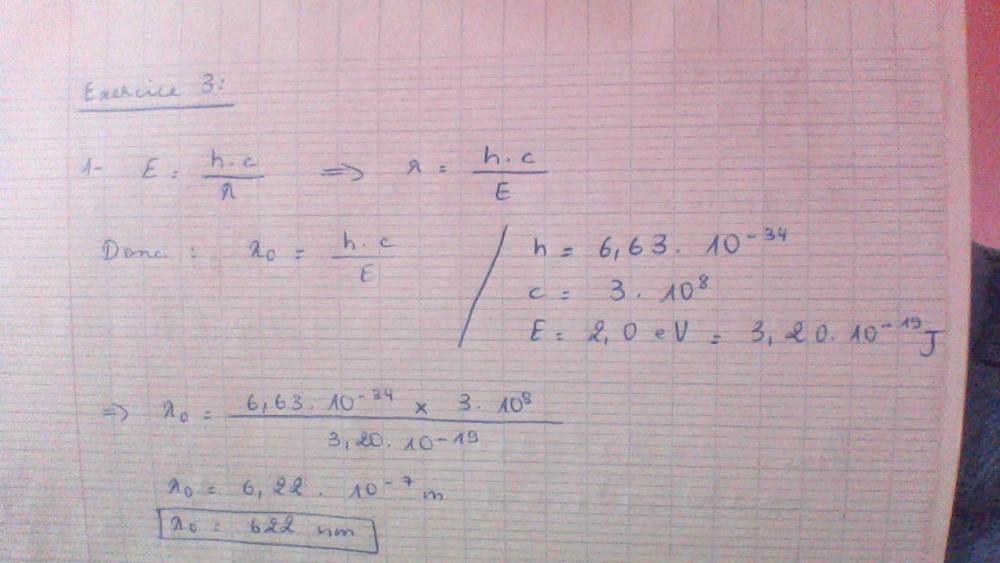 Exercice 3:
1- E = h.c / λ ⇒ λ = h.c / E
Donc : λ0 = h.c / E
h = 6,63. 10^-34
c = 3. 10^8
E = 2,0 eV = 3,20. 10^-19 J
⇒ λ0 = 6,63. 10^-34 x 3. 10^8 / 3,20. 10^-19
λ0 = 6,22. 10^-7 m
λ0 = 622 nm